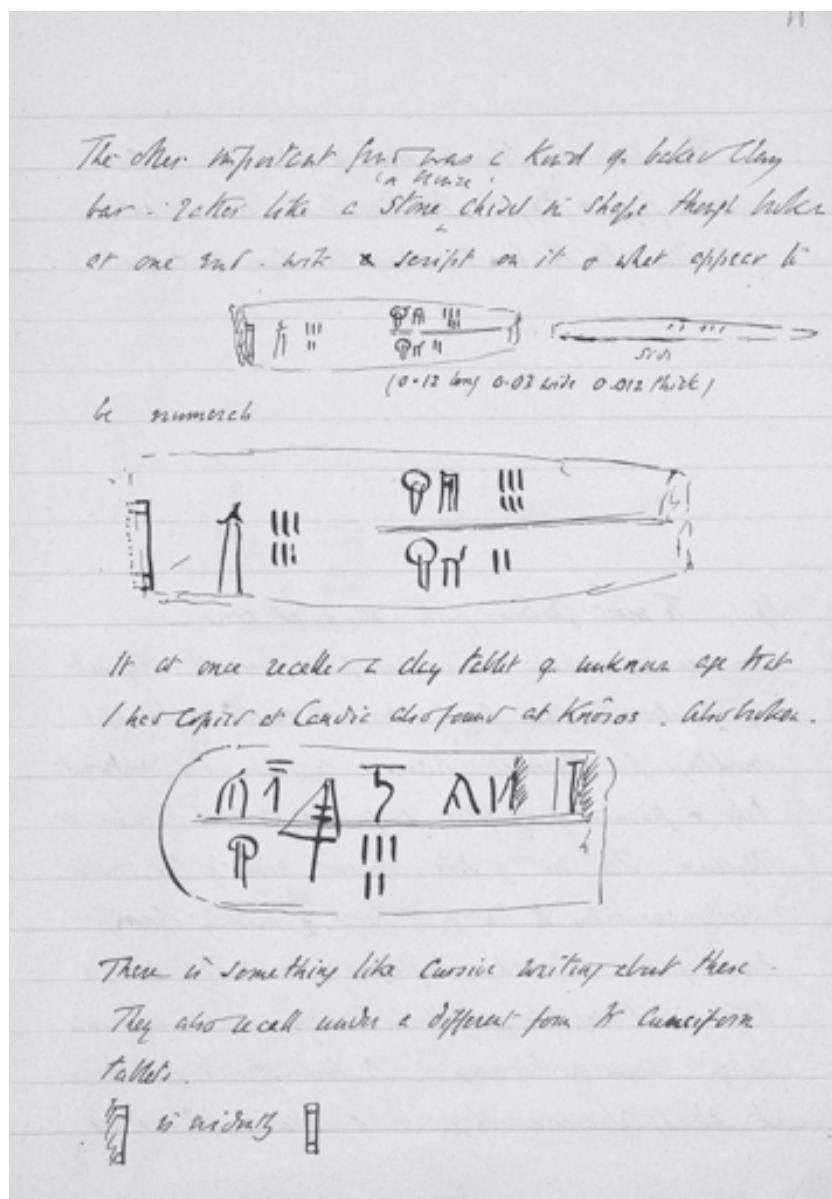 The other important find was a kind of baked clay
(a bronze)
bar - rather like a stone chisel in shape though broken
at one end - with script on it & what appear to
side
(0.12 long 0.03 wide 0.012 thick)
be numerals
It at once recalled a clay tablet of unknown age that
I had copied at Candia also found at Knôsos. Also broken.
There is something like cursive writing about these.
They also recall under a different form the cuneiform
tablets.
is evidently